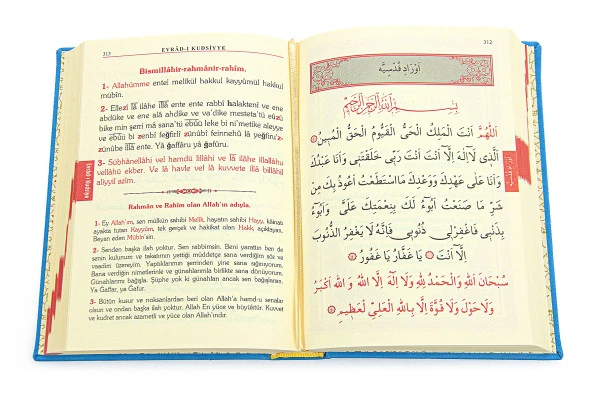 313
EVRÂD-I KUDSİYYE
Bismillâhir-rahmânir-rahîm.
1- Allahümme entel melikül hakkul kayyûmül hakkul
mübîn.
2- Ellezî lâ ilâhe illâ ente ente rabbî halaktenî ve ene
abdüke ve ene alâ ahdike ve va'dike mesteta'tü eûzü
bike min şerri mâ sana'tü ebûü leke bi ni'metike aleyye
ve ebûü bi zenbî feğfirlî zünûbî feinnehû lâ yeğfiru'z-
zünûbe illâ ente. Yâ ğaffâru yâ ğafûru.
3- Sübhânellâhi vel hamdü lillâhi ve lâ ilâhe illallâhu
vellâhü ekber. Ve lâ havle vel lâ kuvvete illâ billâhil
aliyyil azîm.
Rahmân ve Rahîm olan Allah'ın adıyla.
1- Ey Allah'ım, sen mülkün sahibi Melik, hayatın sahibi Hayy, kâinatı
ayakta tutan Kayyûm, tek gerçek ve hakikat olan Hakk, açıklayan,
Beyan eden Mübîn'sin.
2- Senden başka ilah yoktur. Sen rabbimsin. Beni yarattın ben de
senin kulunum ve takatımın yettiği müddetçe sana verdiğim söz ve
vaadim üzereyim. Yaptıklarımın şerrinden yine sana sığınıyorum.
Bana verdiğin nimetlerinle ve günahlarımla birlikte sana dönüyorum.
Günahlarımı bağışla. Şüphe yok ki günahları ancak sen bağışlarsın.
Ya Gaffar, ya Gafur.
3- Bütün kusur ve noksanlardan beri olan Allah'a hamd-u senalar
olsun ve ondan başka ilah yoktur. Allah En yüce ve büyüktür. Kuvvet
ve kudret ancak azametli ve yüce olan Allah'ındır.
Evrâd-ı Kudsiyye
312
اَوْرَادِ قُدْسِيَّه
بِسْمِ اللهِ الرَّحْمٰنِ الرَّحِيمِ
اَللّٰهُمَّ اَنْتَ الْمَلِكُ الْحَىُّ الْقَيُّومُ الْحَقُّ الْمُبِينُ
اَلَّذِى لَآ اِلٰهَ اِلَّا اَنْتَ اَنْتَ رَبِّى خَلَقْتَنِى وَاَنَا عَبْدُكَ
وَاَنَا عَلٰى عَهْدِكَ وَوَعْدِكَ مَا اسْتَطَعْتُ اَعُوذُ بِكَ مِنْ
شَرِّ مَا صَنَعْتُ اَبُوءُ لَكَ بِنِعْمَتِكَ عَلَىَّ وَاَبُوءُ
بِذَنْبِى فَاغْفِرْلِى ذُنُوبِى فَاِنَّهُ لَا يَغْفِرُ الذُّنُوبَ
اِلَّا اَنْتَ يَا غَفَّارُ يَا غَفُورُ
سُبْحَانَ اللهِ وَالْحَمْدُ لِلّٰهِ وَلَا اِلٰهَ اِلَّا اللهُ وَ اللهُ اَكْبَرُ
وَلَا حَوْلَ وَلَا قُوَّةَ اِلَّا بِاللهِ الْعَلِىِّ الْعَظِيمِ
اَوْرَادِ قُدْسِيَّه